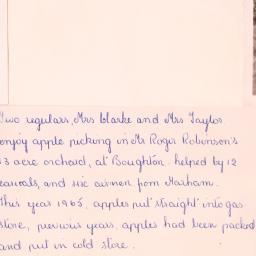 Two regulars, Mrs Clarke and Mrs Taylor
enjoy apple picking in Mr Roger Robinson's
3 acre orchard, at Boughton. helped by 12
casuals, and six airmen from Marham.
This year 1965, apples put straight into gas
store, previous years apples had been packed
and put in cold store.